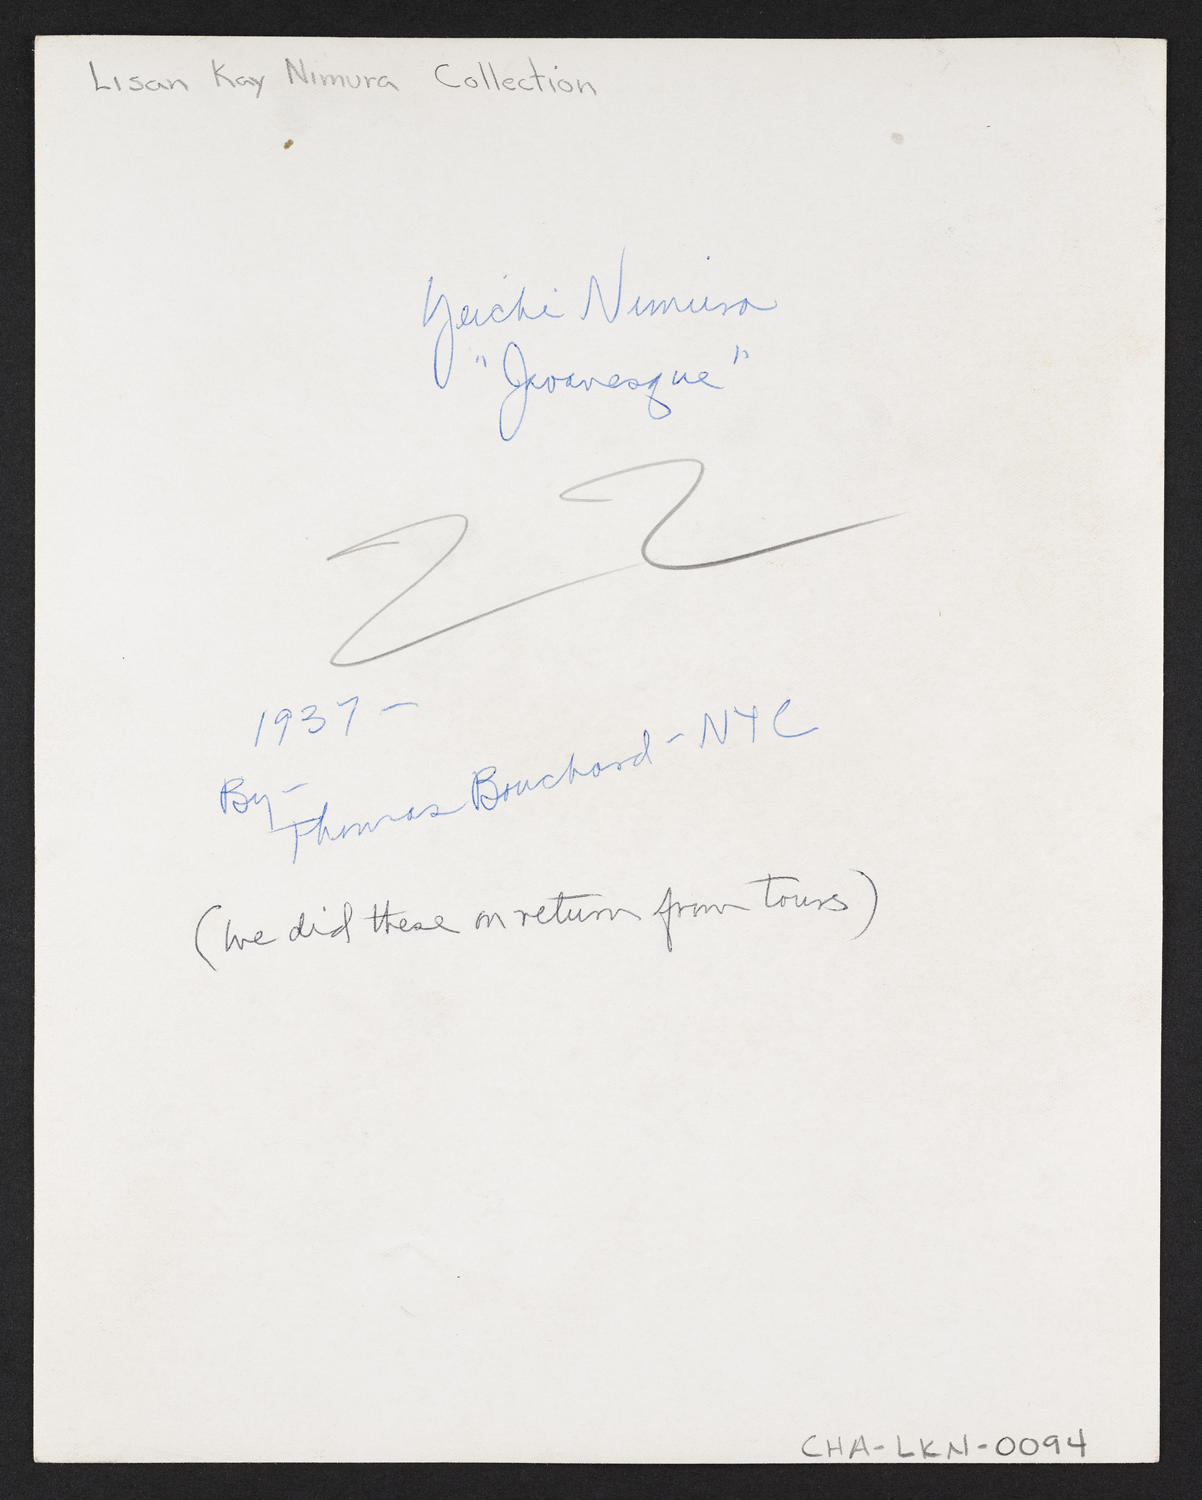 Lisan Kay Nimura Collection
Yeichi Nimura
"Javanesque"
22
1937 -
By -
Thomas Bouchard - NYC
(we did these on return from tours)
CHA-LKN-0094